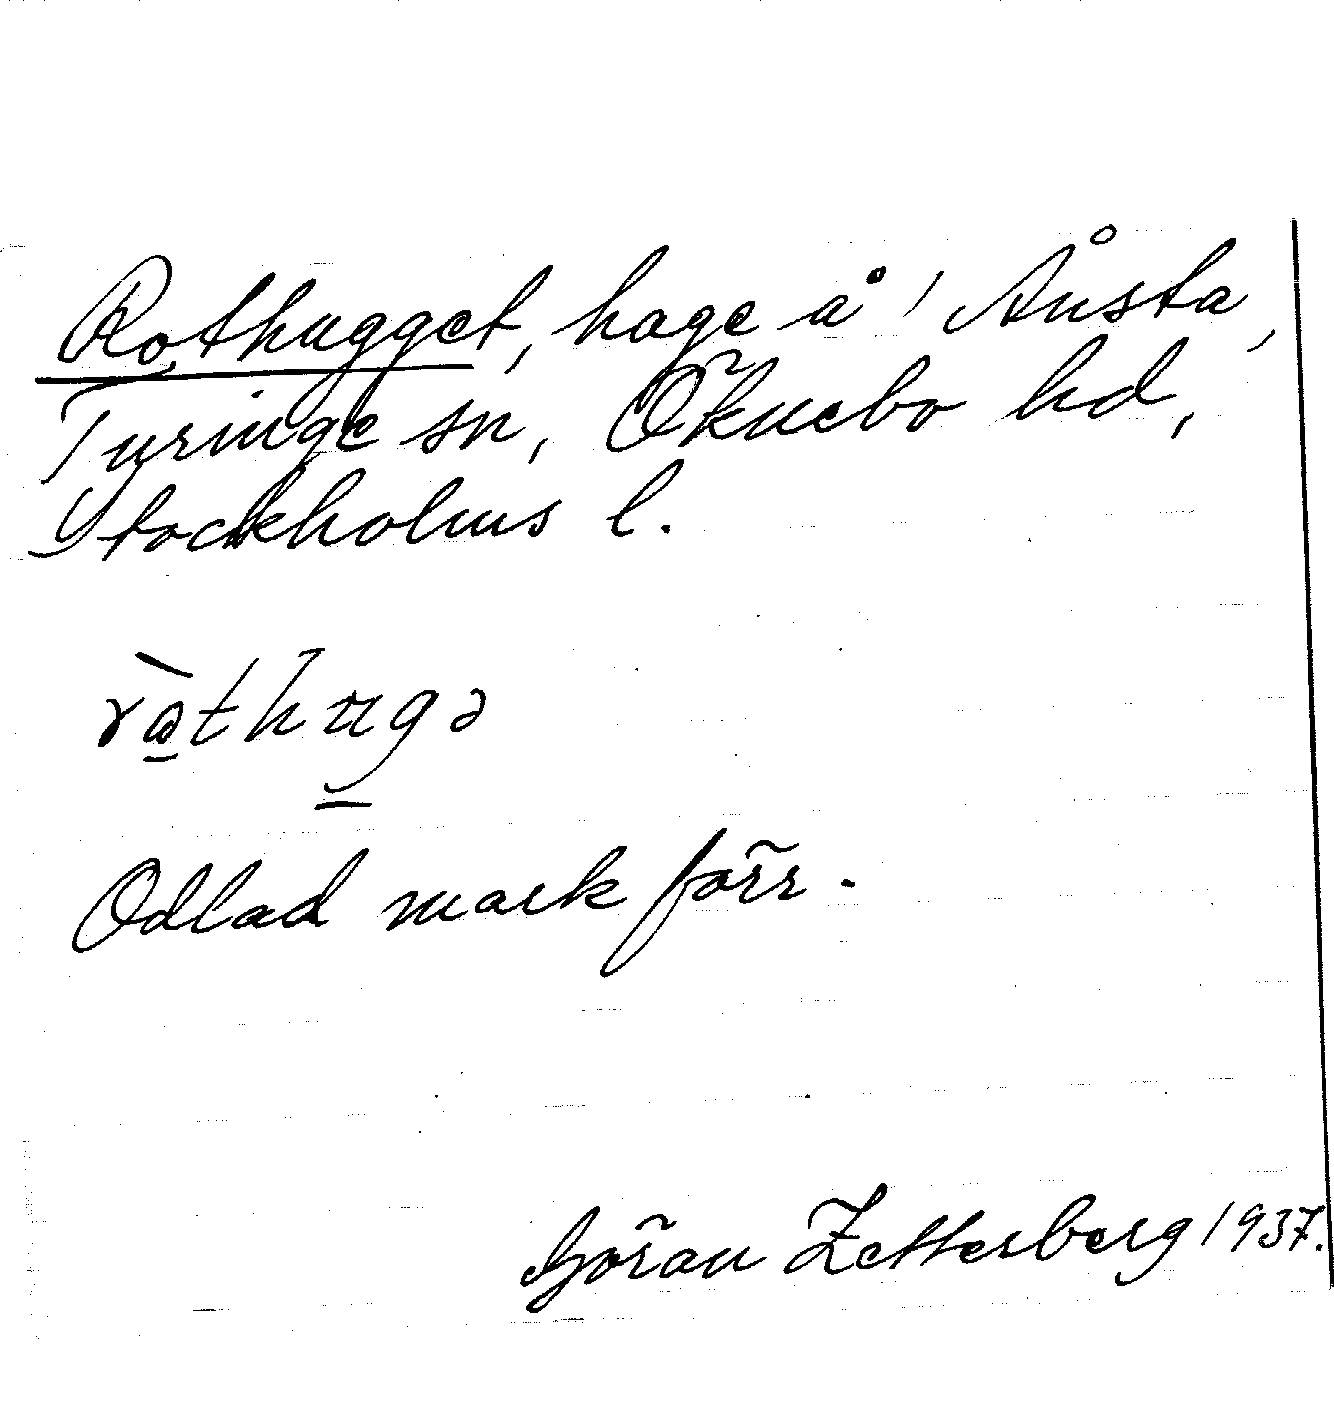 Rothugget, hage å ' Åusta,
Turinge sn, Öknebo hd,
Stockholms l.
Odlad mark förr.
Göran Zetterberg 1937.